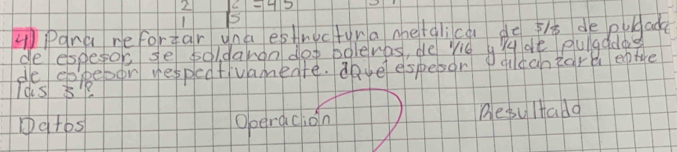 2 5 = 45
1 5
4) Para reforzar una estructura metalica de 5/8 de pulgada
de espesor, se soldaron dos soleras, de 1/16 y 1/4 de pulgadas
de espesor respectivamente. ¿Que espesor alcanzara entre
las 3?
Datos Operación Resultado